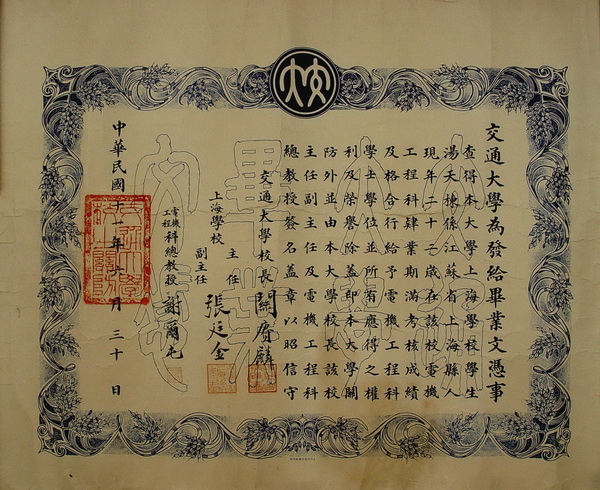 交通大學為發給畢業文憑事
查得本大學上海學校學生
湯天棟係江蘇省上海縣人
現年二十二歲在該校電機
工程科肄業期滿考核成績
及格合行給予電機工程科
學士學位並所有應得之權
利及榮譽除蓋印本大學關
防外並由本大學校長該校
主任副主任及電機工程科
總教授簽名蓋章以昭信守
交通大學校長 關賡麟
上海學校 主任
副主任 張廷金
電機工程科總教授 謝爾屯
中華民國十一年六月三十日